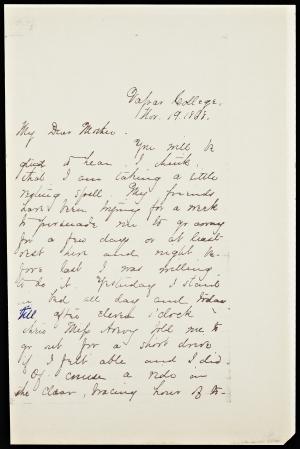 Vassar College,
Nov. 19. 1888.
My Dear Mother.
You will be
glad to hear I think,
that I am taking a little
resting spell. My friends
have been trying for a week
to persuade me to go away
for a few days or at least
rest here and night be-
fore last I was willing
to do it. Yesterday I staid
in bed all day and today
till after eleven o'clock
Miss told me to
go out for a short drive
if I felt able and I did
Of course a ride in
the clear, bracing hour of